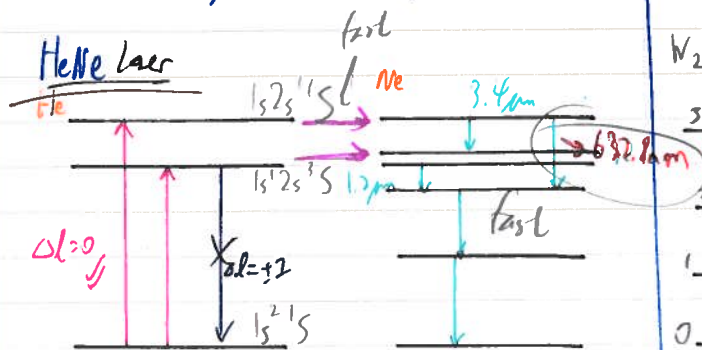 HeNe Laer
fast
He
1s2s ¹S
Ne
3.4μm
632.8nm
1s¹2s ³S
1.2μm
fast
Δl=0
Δl=±1
1s² ¹S
W2
3
1
0